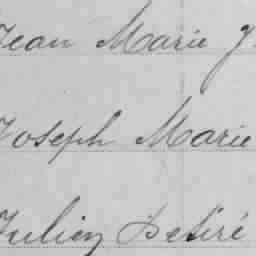 Jean Marie
Joseph Marie
Julien Désiré